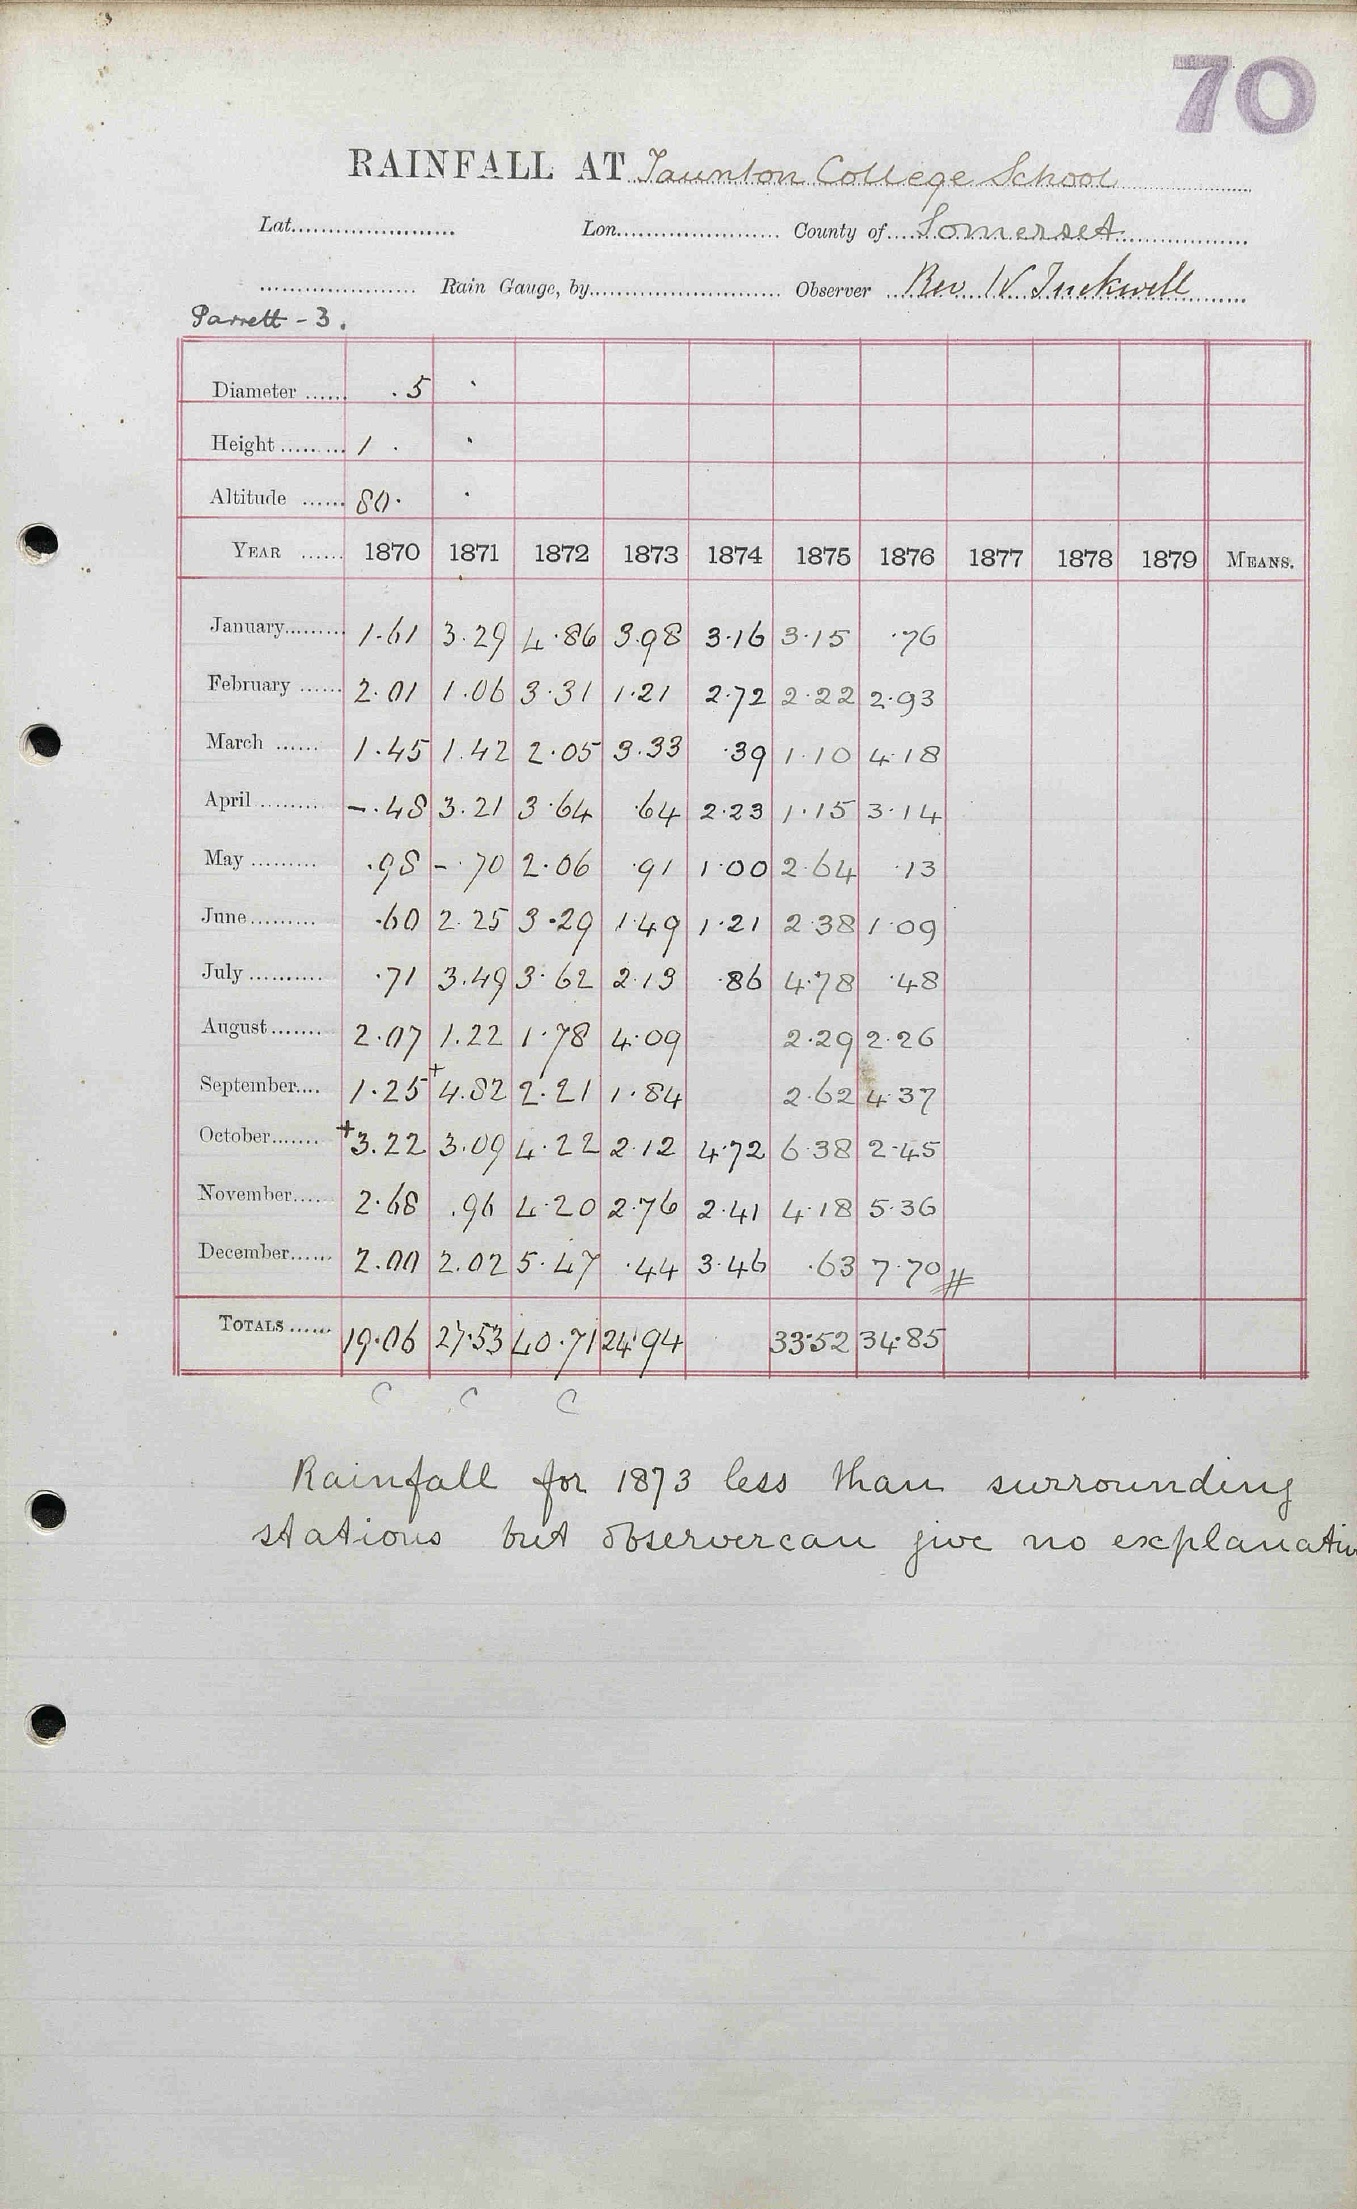 70
RAINFALL AT Taunton College School
Lat. Lon. County of Somerset
Rain Gauge, by Observer Rev W Tuckwell
Parrett - 3.
Diameter ...... .5 .
Height ......... 1 . .
Altitude ...... 80. .
YEAR ...... 1870 1871 1872 1873 1874 1875 1876 1877 1878 1879 MEANS.
January......... 1.61 3.29 4.86 3.98 3.16 3.15 .76
February ...... 2.01 1.06 3.31 1.21 2.72 2.22 2.93
March ...... 1.45 1.42 2.05 3.33 .39 1.10 4.18
April ......... -.48 3.21 3.64 .64 2.23 1.15 3.14
May ......... .98 -.70 2.06 .91 1.00 2.64 .13
June......... .60 2.25 3.29 1.49 1.21 2.38 1.09
July .......... .71 3.49 3.62 2.13 .86 4.78 .48
August....... 2.07 1.22 1.78 4.09 2.29 2.26
September.... 1.25 +4.82 2.21 1.84 2.62 4.37
October....... +3.22 3.09 4.22 2.12 4.72 6.38 2.45
November...... 2.68 .96 4.20 2.76 2.41 4.18 5.36
December...... 2.00 2.02 5.47 .44 3.46 .63 7.70 #
TOTALS ...... 19.06 27.53 40.71 24.94 33.52 34.85
C C C
Rainfall for 1873 less than surrounding
stations but observer can give no explanation